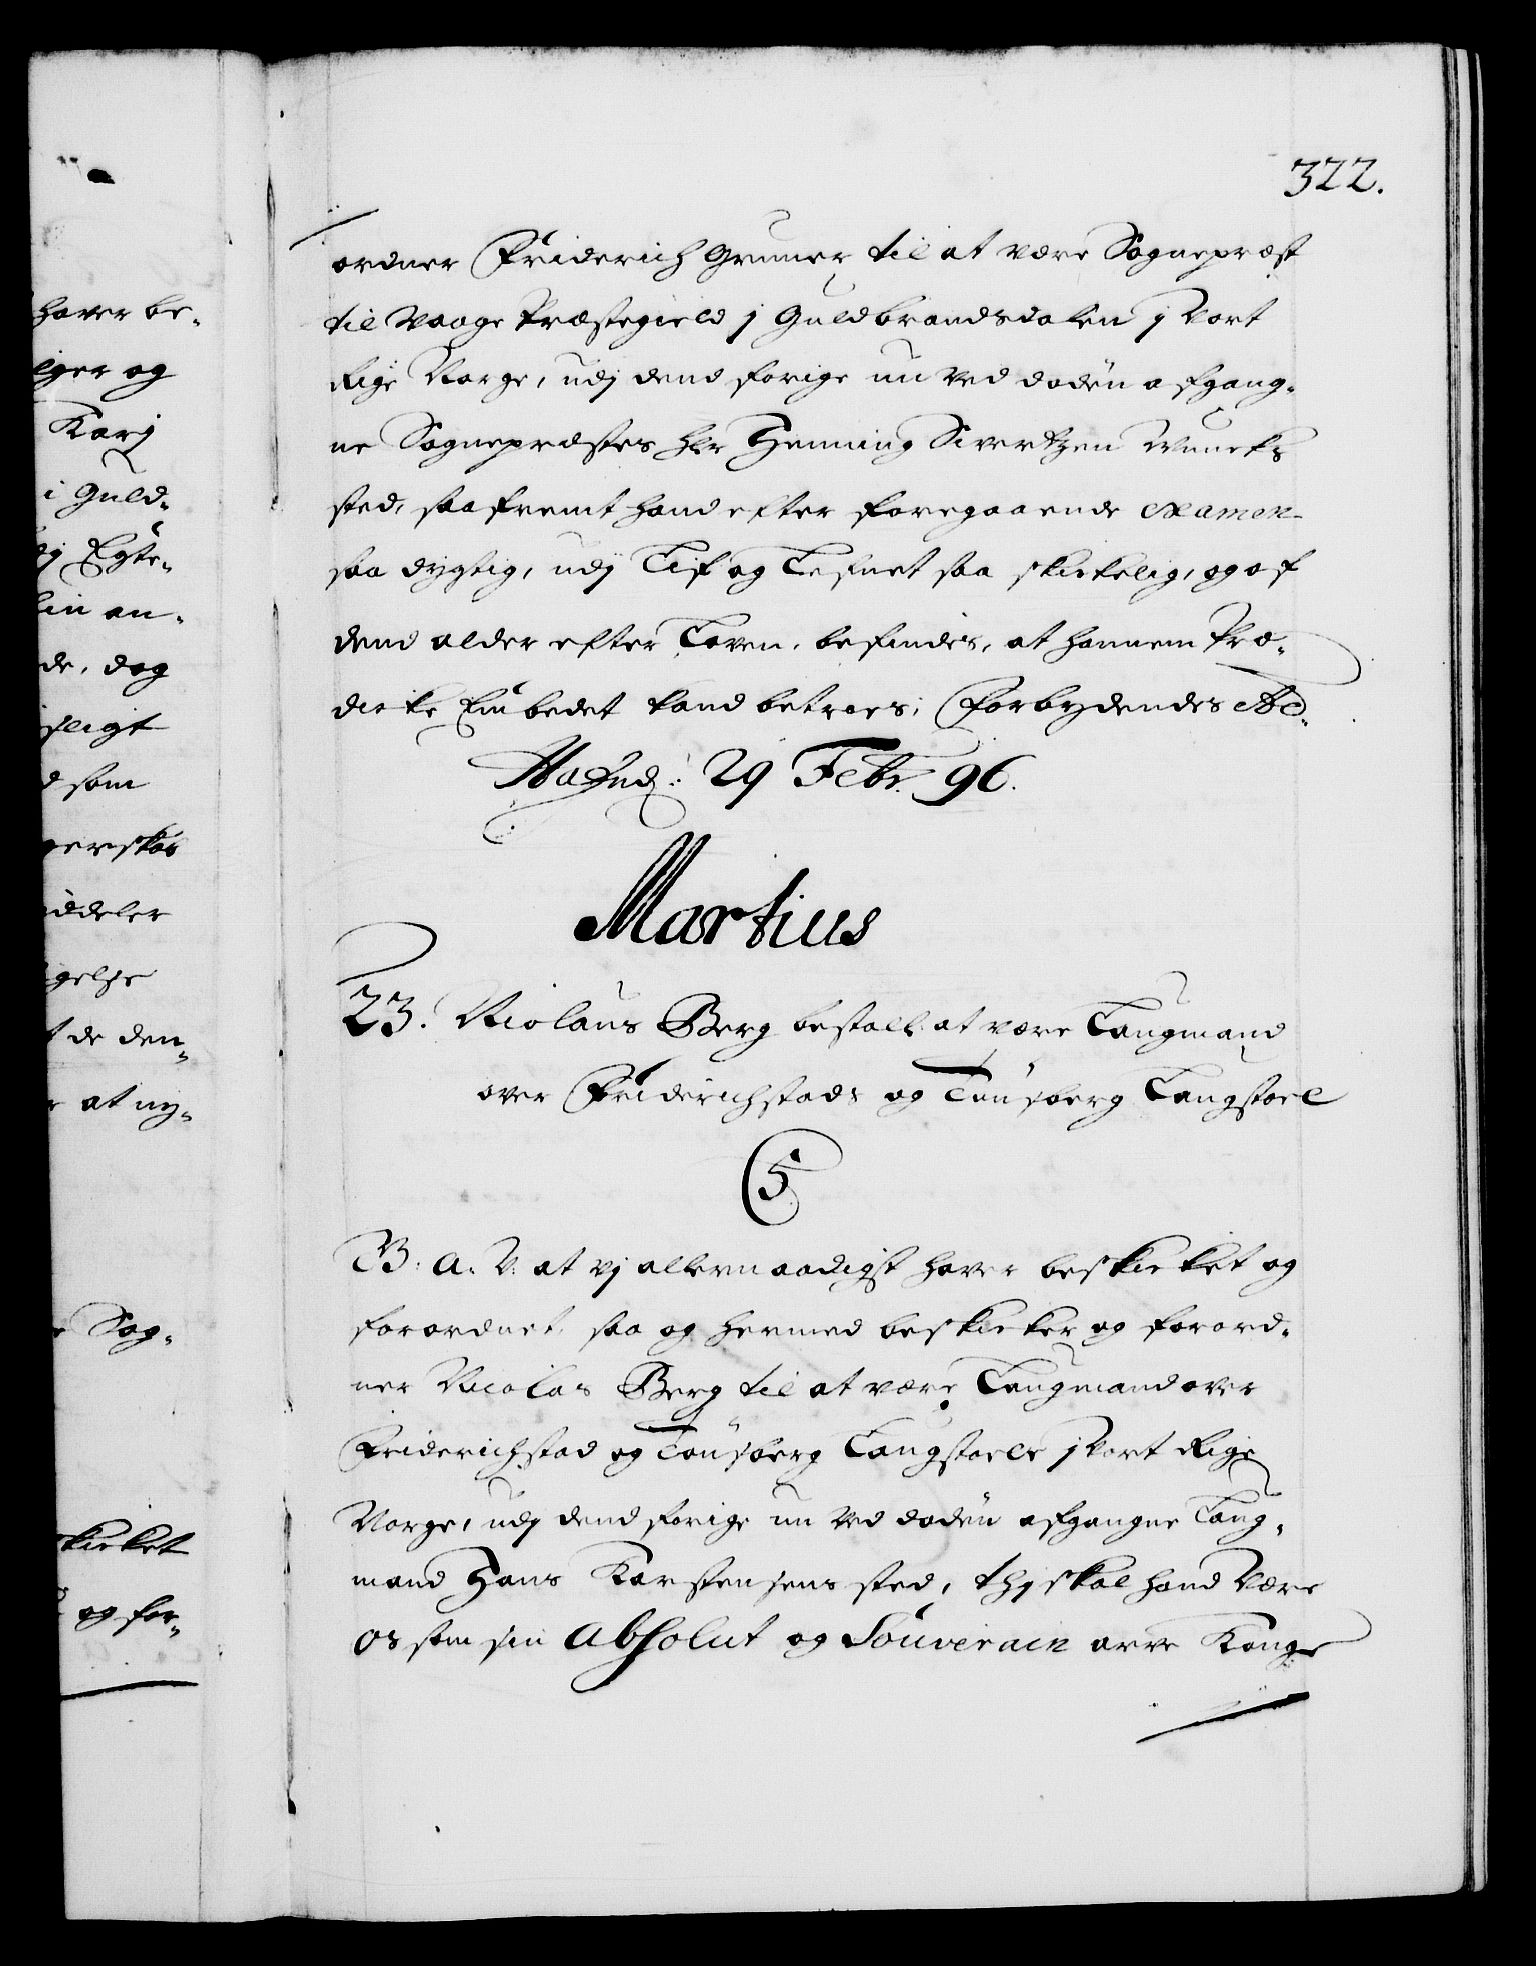 322.
ordner Friderich Gruner til at være Sognepræst
til Vaage Præstegield j Guldbrandsdalen j Vort
Rige Norge, udj dend forige nu ved døden afgang-
ne Sognepræstes Hr Henning Sivertzen Muncks
sted, saafremt hand efter foregaaende examen
saa dygtig, udj Lif og Lefnet saa skickelig, og af
dend alder efter Loven, befindes, at hannem Præ-
dicke Embedet kand betroes; Forbydendes Etc.
Hafnæ: 29 Febr. 96.
Martius
23. Nicolaus Berg bestalt: at være Laugmand
over Friderichstads og Tønsberg Laugstoel
C5
V: A: V: at vj allernaadigst haver beskicket og
forordnet, saa og hermed beskicker og forord-
ner Nicolas Berg til at være Laugmand over
Friderichstad og Tønsberg Laugstoele j Vort Rige
Norge, udj dend forige nu ved døden afgangne Laug-
mand Hans Karstensens sted, thj skal hand Være
os som sin Absolut og Souverain arve Konge
haver be-
liger og
Karj
i Guld-
dj Egte-
an-
de, dog
sligt
som
gerskab
iddeler
gelse
de den-
at ny-
Sog-
skicket
og for-